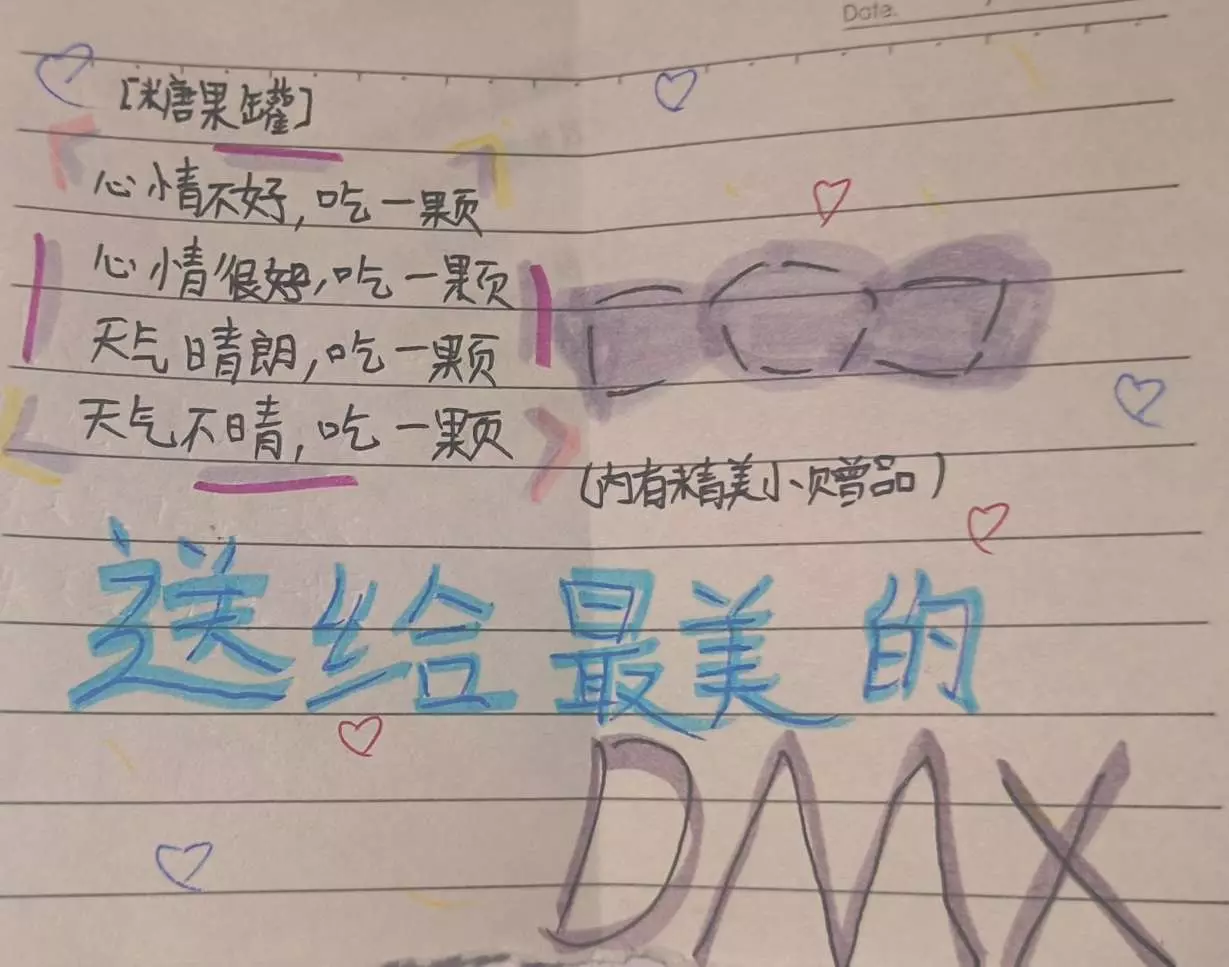 Date.
[糖果罐]
心情不好,吃一颗
心情很好,吃一颗
天气晴朗,吃一颗
天气不晴,吃一颗
(内有精美小赠品)
送给最美的
DMX